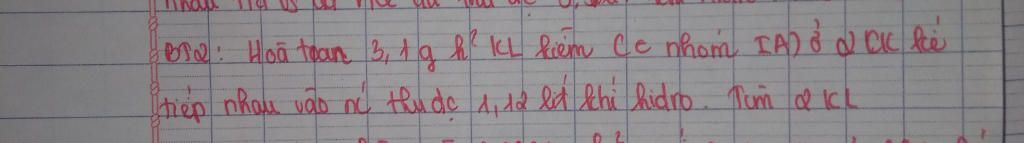 BT2: Hoà toan 3,1g h² KL kiềm (є nhóm IA) ở 2 CK kế
tiếp nhau vào nc thu đc 1,12 lít khí hidro. Tìm 2 KL